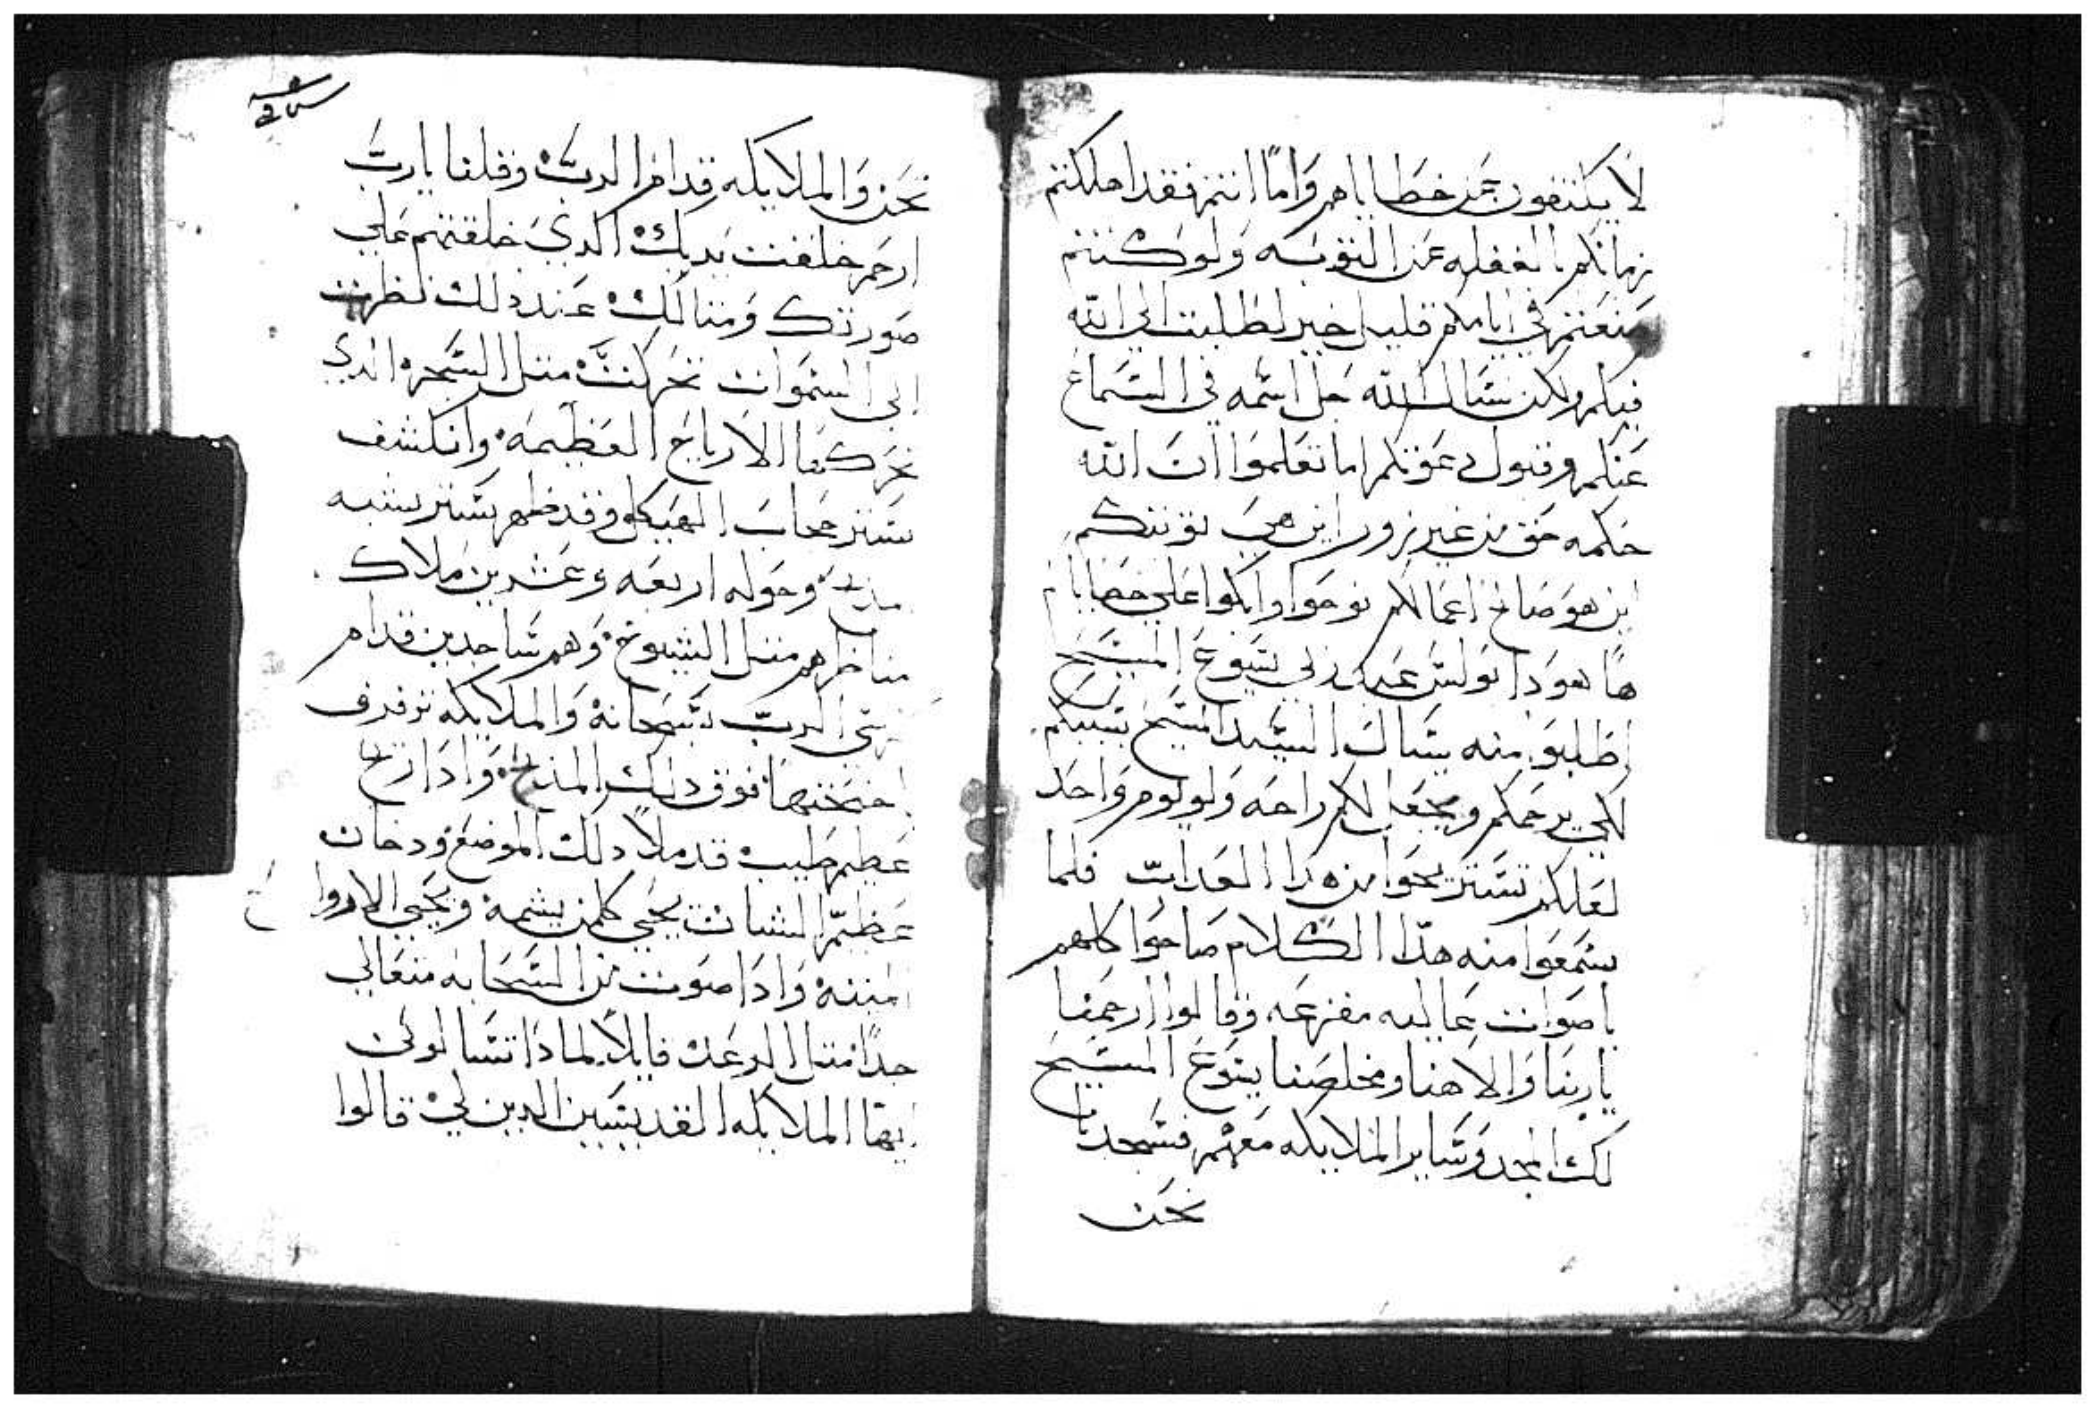 لا يكتفون عن خطاياهم واما انتم فقد اهلكتم
زمانكم بالغفله عن التوبه ولو كنتم
صنعتم في ايامكم قليل خير لطلبت الي الله
فيكم ولكن نسال الله جل اسمه في السماع
عنكم وقبول دعوتكم اما تعلموا ان الله
حكمه حق من غير زور اين هي توبتكم
اين هو صالح اعمالكم نوحوا وابكوا علي خطاياكم
ها هودا بولس عبدي يسوع المسيح
اطلبوا منه يسال السيد المسيح بسببكم
لكي يرحمكم ويجعل لكم راحه ولو يوم واحد
لعلكم تستريحوا من هدا العداب فلما
سمعوا منه هدا الكلام صاحوا كلهم
باصوات عاليه مفزعه وقالوا ارحمنا
ياربنا والاهنا ومخلصنا يسوع المسيح
لك المجد وساير الملايكه معهم فسجدنا
نحن
نحن والملايكه قدام الرب وقلنا يارب
ارحم خلقت يديك الدي خلقتهم علي
صورتك ومثالك عند دلك نظرت
الي السموات تحركت متل الشجره الدي
تحركها الارياح العظيمه وانكشف
ستر حجاب الهيكل وقد ظهر ستر يشبه
مدبح وحوله اربعه وعشرين ملاك
مناظرهم متل الشيوخ وهم ساجدين قدام
الرب سبحانه والملايكه ترفرف
اجنحتها فوق دلك المدبح وادا ريح
عظيم طيب قد ملا دلك الموضع ودخان
عظيم الشان يحيي كلمن يشمه ويحيي الارواح
الميته وادا صوت من السحابه متعالي
جدا متل الرعد قايلا لمادا تسالوني
ايها الملايكه القديسين الدين لي قالوا